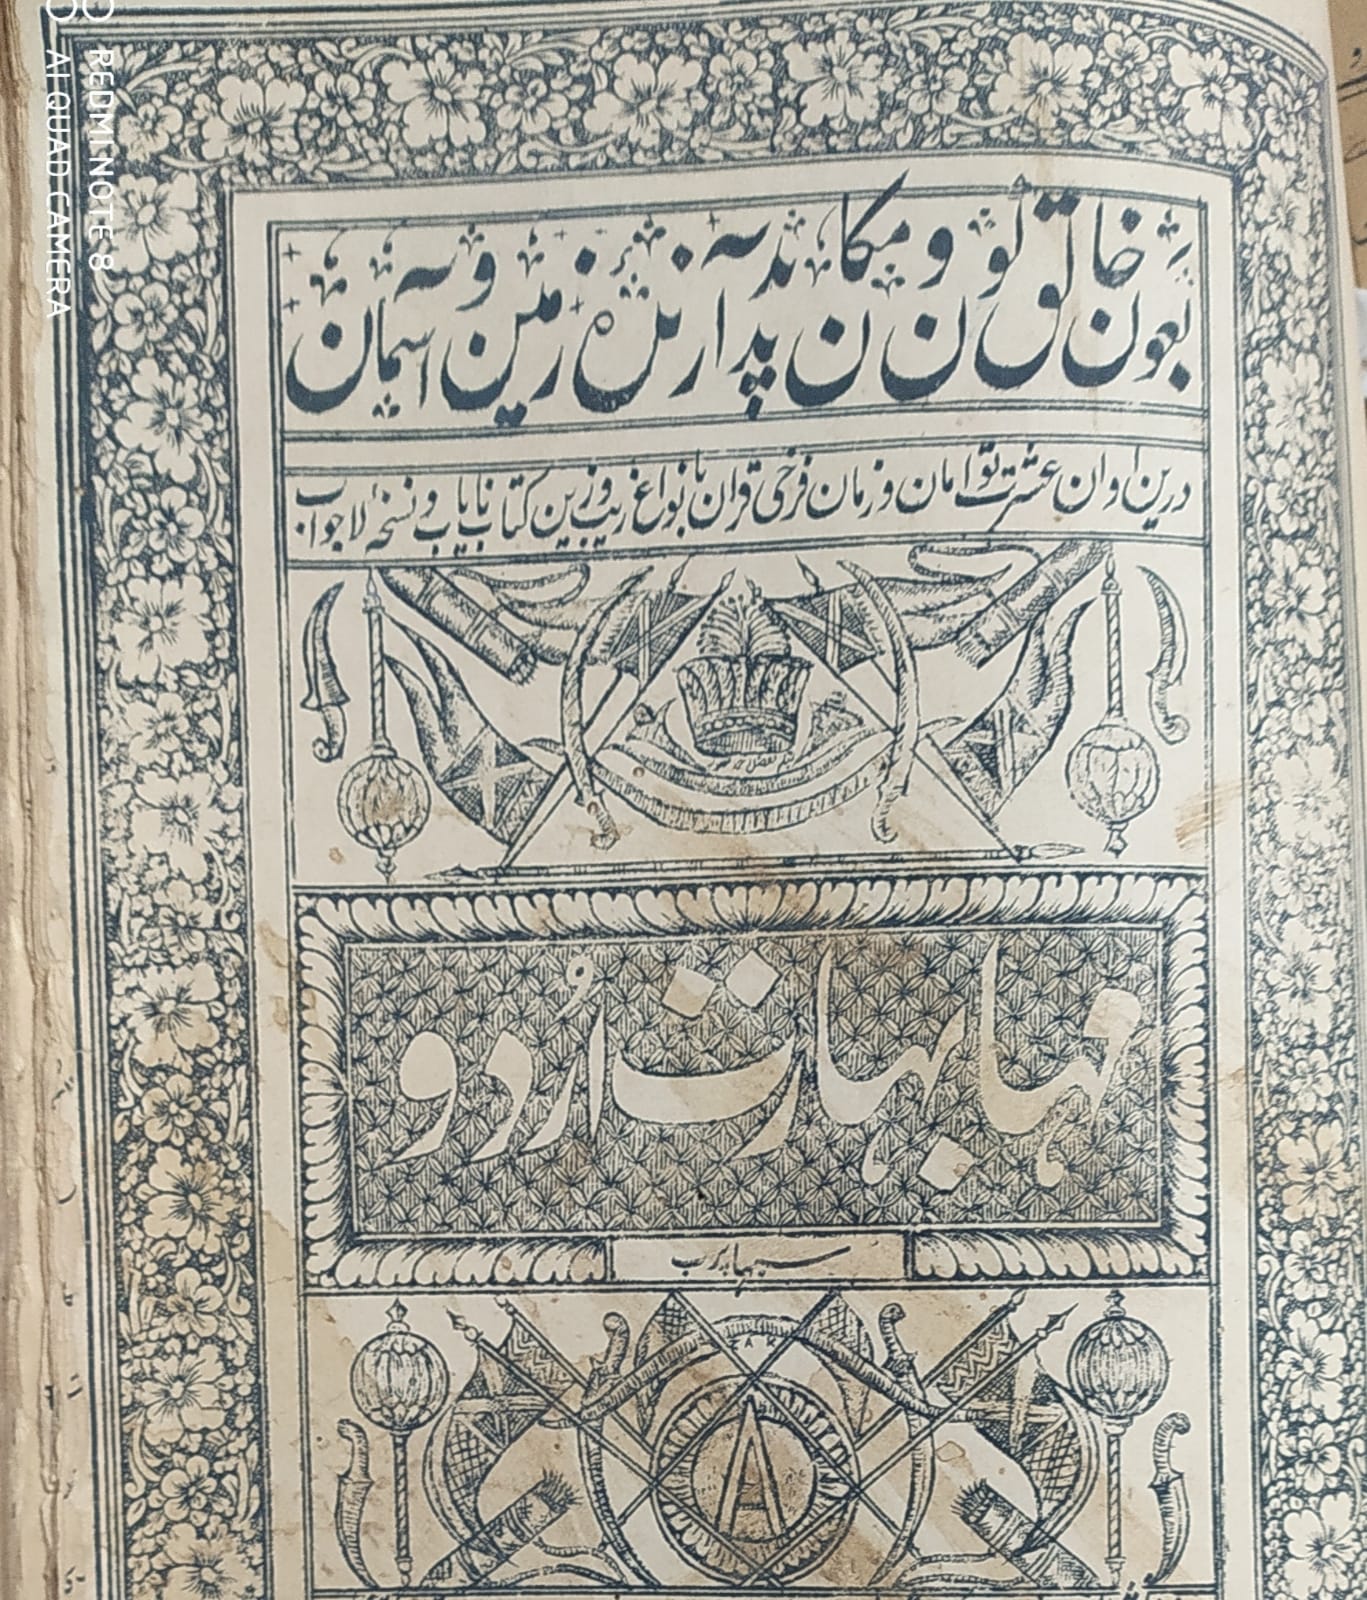 بعون خالق کون و مکان پدید آرندهٔ زمین و آسمان
درین اوان عشرت توامان و زمان فرخی قران بانواع زیب و زین کتاب نایاب و نسخہ لاجواب
مہابھارت اُردو
سبھاپرب
A
REDMI NOTE 8
AI QUAD CAMERA